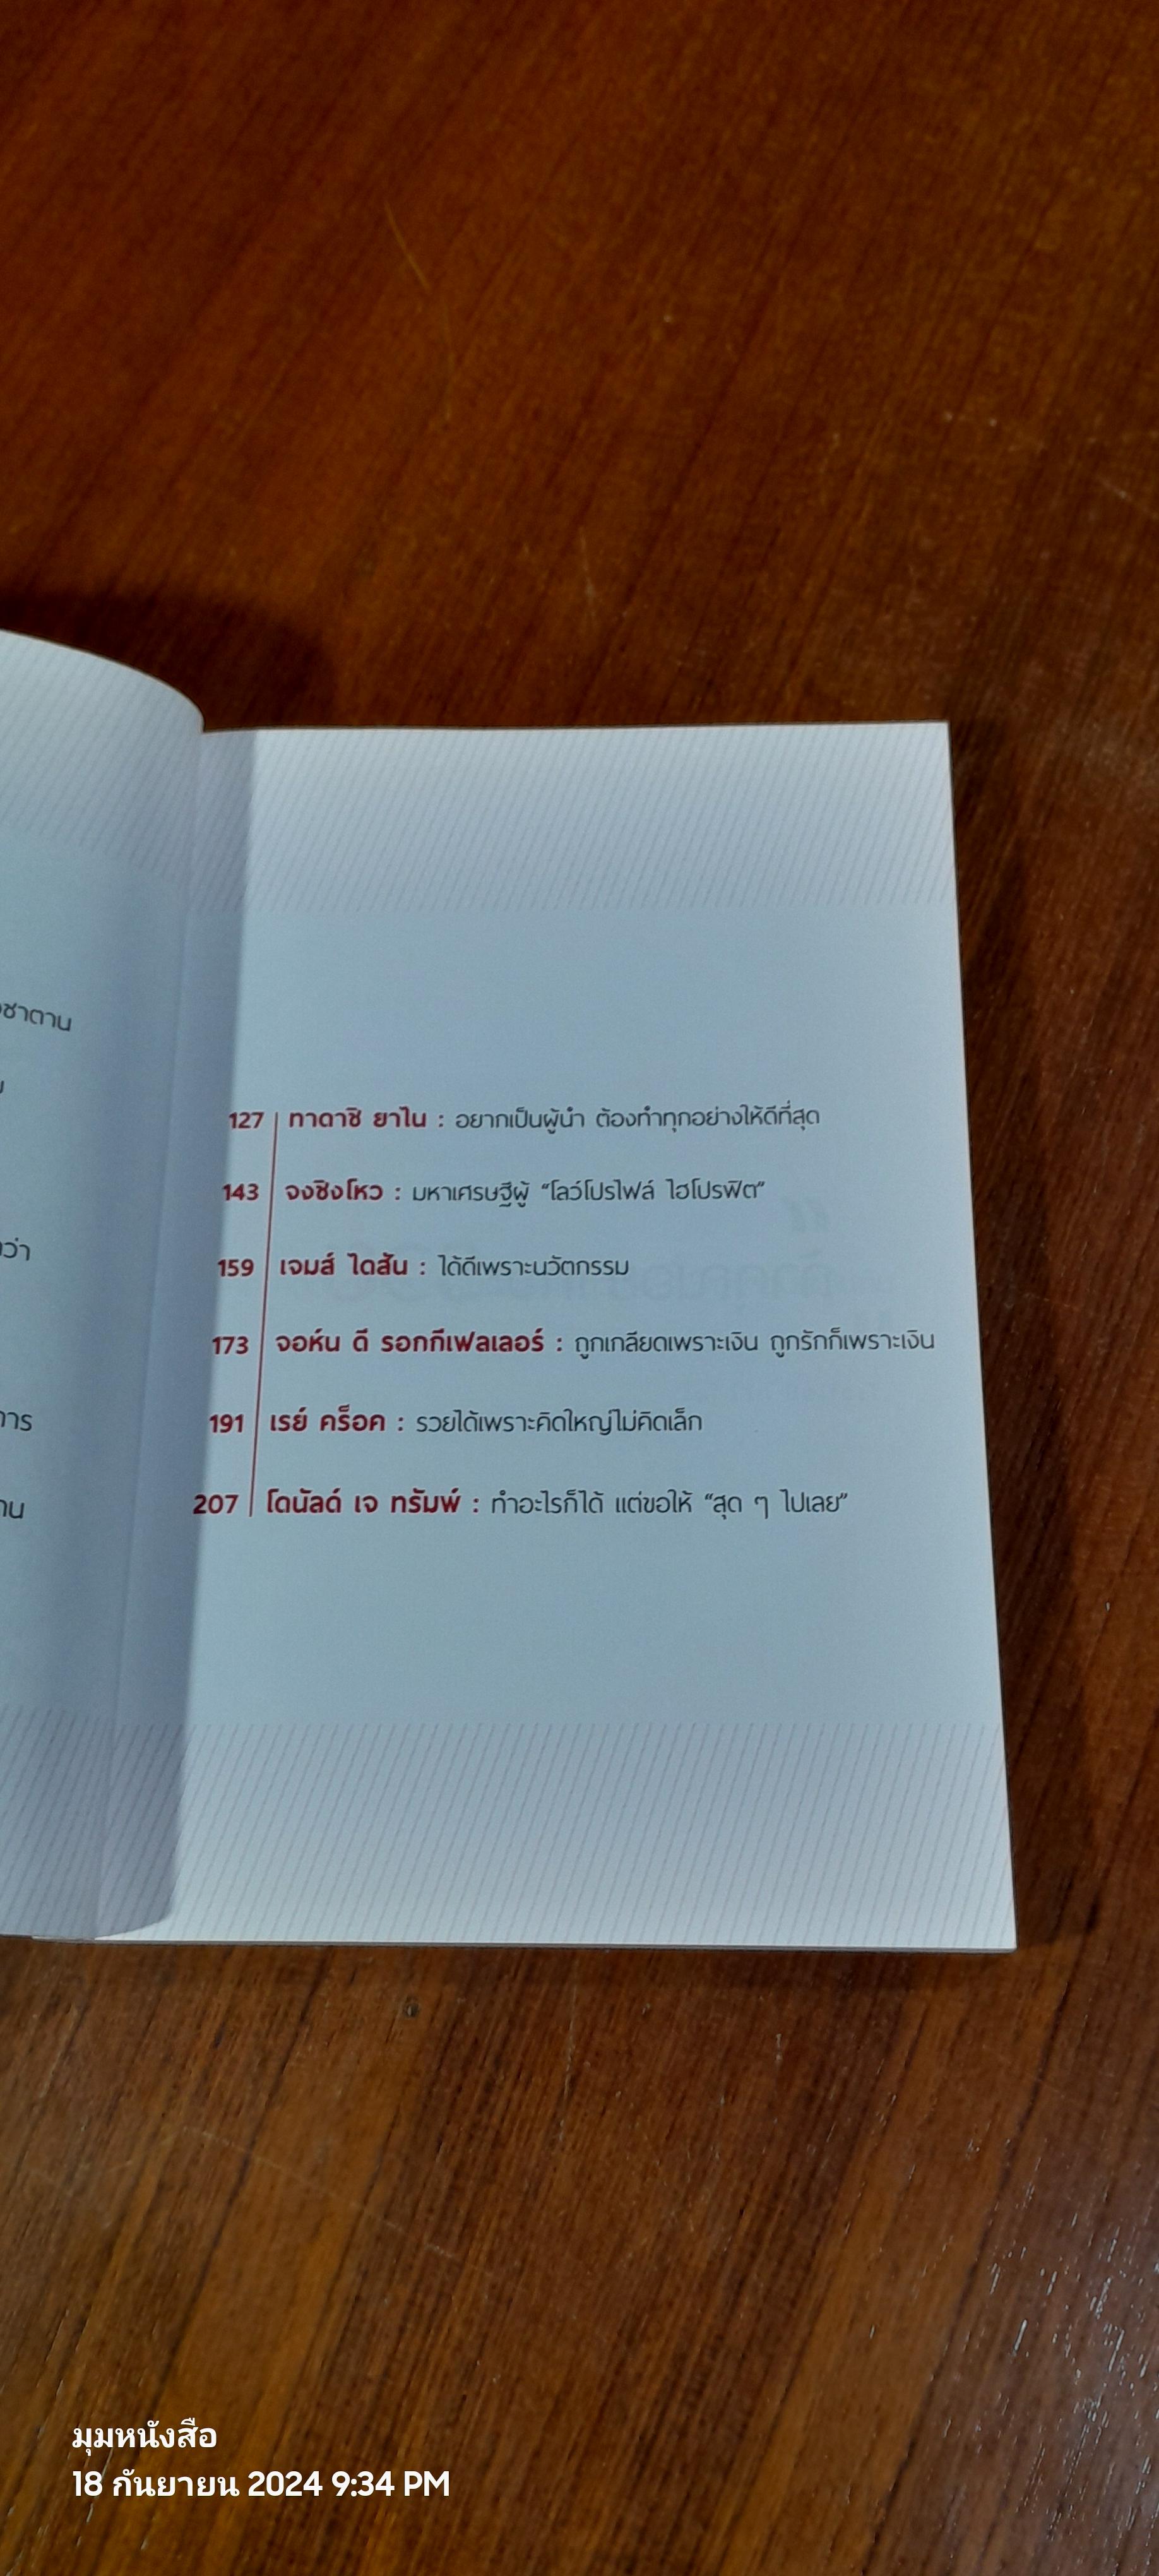 ชาตาน
ว่า
การ
127 ทาดาชิ ยาไน : อยากเป็นผู้นำ ต้องทำทุกอย่างให้ดีที่สุด
143 จงชิงโหว : มหาเศรษฐีผู้ “โลว์โปรไฟล์ ไฮโปรฟิต”
159 เจมส์ ไดสัน : ได้ดีเพราะนวัตกรรม
173 จอห์น ดี รอกกีเฟลเลอร์ : ถูกเกลียดเพราะเงิน ถูกรักก็เพราะเงิน
191 เรย์ คร็อค : รวยได้เพราะคิดใหญ่ไม่คิดเล็ก
207 โดนัลด์ เจ ทรัมพ์ : ทำอะไรก็ได้ แต่ขอให้ “สุด ๆ ไปเลย”
มุมหนังสือ
18 กันยายน 2024 9:34 PM